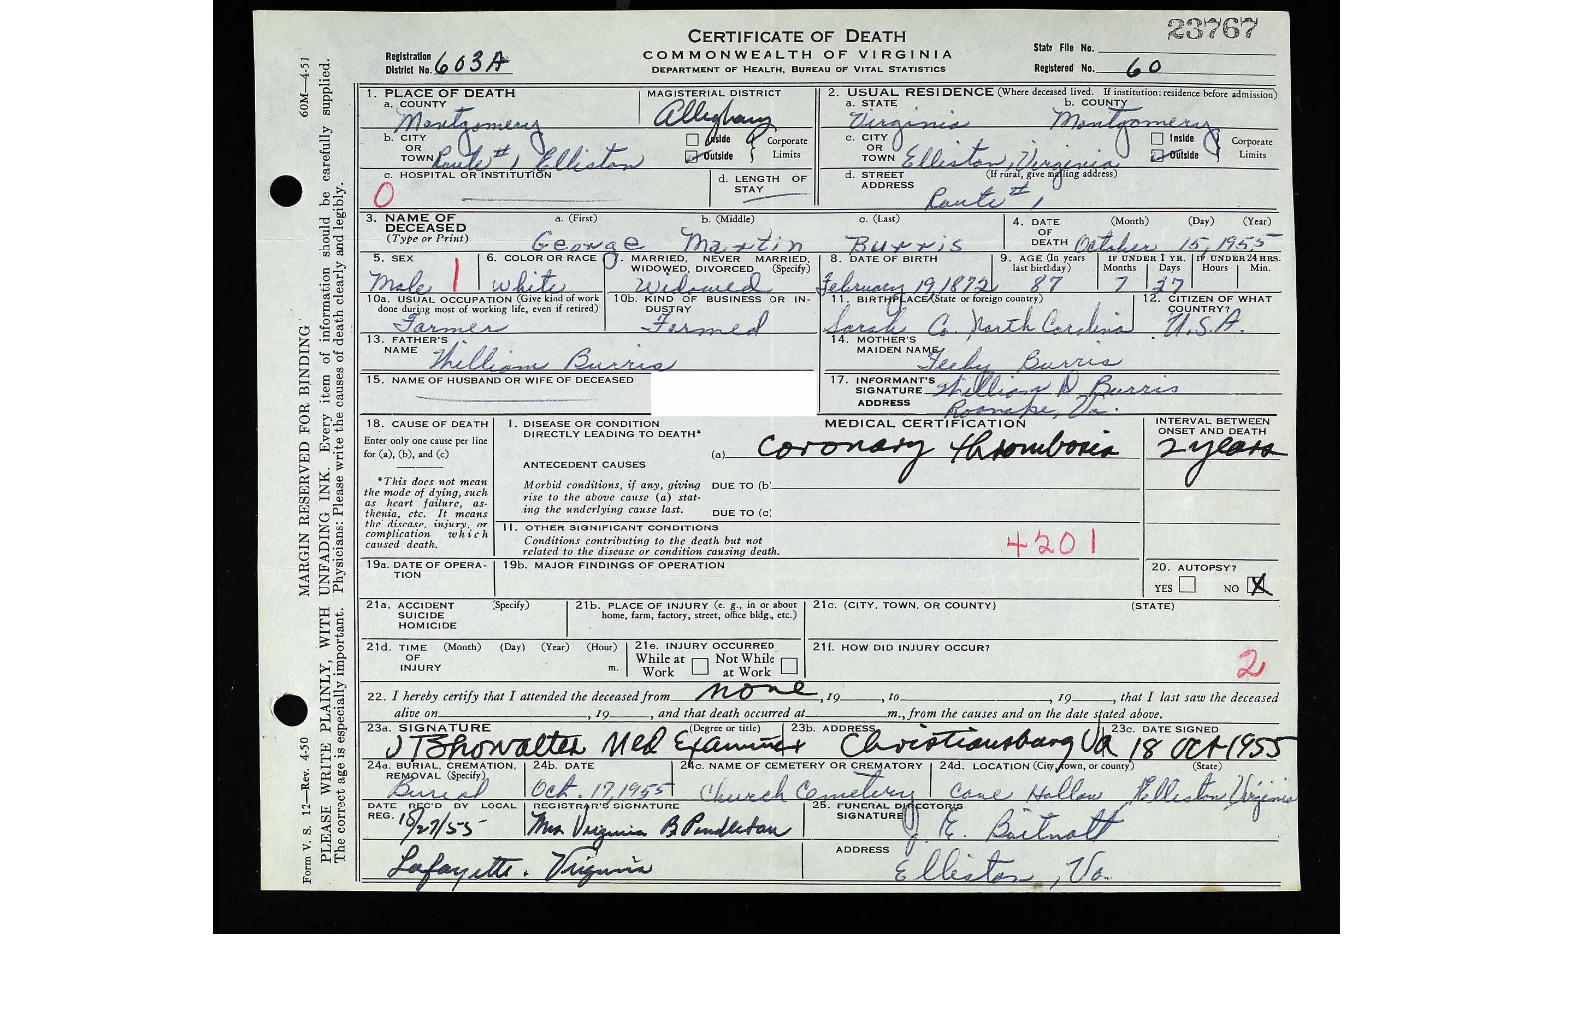 23767
CERTIFICATE OF DEATH
COMMONWEALTH OF VIRGINIA
DEPARTMENT OF HEALTH, BUREAU OF VITAL STATISTICS
Registration District No. 603A
State File No.
Registered No. 60
Form V. S. 12—Rev. 4-50 MARGIN RESERVED FOR BINDING 60M—4-51
PLEASE WRITE PLAINLY, WITH UNFADING INK. Every item of information should be carefully supplied.
The correct age is especially important. Physicians: Please write the causes of death clearly and legibly.
1. PLACE OF DEATH
a. COUNTY Montgomery
MAGISTERIAL DISTRICT Alleghany
b. CITY OR TOWN Route #1 Elliston
Inside Outside Corporate Limits
c. HOSPITAL OR INSTITUTION
0
d. LENGTH OF STAY
2. USUAL RESIDENCE (Where deceased lived. If institution: residence before admission)
a. STATE Virginia
b. COUNTY Montgomery
c. CITY OR TOWN Elliston, Virginia
Inside Outside Corporate Limits
d. STREET ADDRESS (If rural, give mailing address) Route #1
3. NAME OF DECEASED (Type or Print)
a. (First) George b. (Middle) Martin c. (Last) Burris
4. DATE OF DEATH (Month) (Day) (Year) October 15, 1955
5. SEX Male 1
6. COLOR OR RACE White
7. MARRIED, NEVER MARRIED, WIDOWED, DIVORCED (Specify) Widowed
8. DATE OF BIRTH February 19, 1872
9. AGE (In years last birthday) 87
IF UNDER 1 YR. Months 7 Days 27
IF UNDER 24 HRS. Hours Min.
10a. USUAL OCCUPATION (Give kind of work done during most of working life, even if retired) Farmer
10b. KIND OF BUSINESS OR INDUSTRY Farmed
11. BIRTHPLACE (State or foreign country) Co. North Carolina
12. CITIZEN OF WHAT COUNTRY? U.S.A.
13. FATHER'S NAME William Burris
14. MOTHER'S MAIDEN NAME Burris
15. NAME OF HUSBAND OR WIFE OF DECEASED
17. INFORMANT'S SIGNATURE William D Burris
ADDRESS Roanoke, Va.
18. CAUSE OF DEATH
Enter only one cause per line for (a), (b), and (c)
*This does not mean the mode of dying, such as heart failure, asthenia, etc. It means the disease, injury, or complication which caused death.
MEDICAL CERTIFICATION
I. DISEASE OR CONDITION DIRECTLY LEADING TO DEATH*
(a) Coronary thrombosis
INTERVAL BETWEEN ONSET AND DEATH
2 years
ANTECEDENT CAUSES
Morbid conditions, if any, giving rise to the above cause (a) stating the underlying cause last.
DUE TO (b)
DUE TO (c)
II. OTHER SIGNIFICANT CONDITIONS
Conditions contributing to the death but not related to the disease or condition causing death.
4201
19a. DATE OF OPERATION
19b. MAJOR FINDINGS OF OPERATION
20. AUTOPSY?
YES NO X
21a. ACCIDENT SUICIDE HOMICIDE (Specify)
21b. PLACE OF INJURY (e. g., in or about home, farm, factory, street, office bldg., etc.)
21c. (CITY, TOWN, OR COUNTY) (STATE)
21d. TIME OF INJURY (Month) (Day) (Year) (Hour) m.
21e. INJURY OCCURRED
While at Work Not While at Work
21f. HOW DID INJURY OCCUR?
2
22. I hereby certify that I attended the deceased from none, 19, to, 19, that I last saw the deceased
alive on, 19, and that death occurred at m., from the causes and on the date stated above.
23a. SIGNATURE (Degree or title) J T Showalter Med Examiner
23b. ADDRESS Christiansburg Va
23c. DATE SIGNED 18 Oct 1955
24a. BURIAL, CREMATION, REMOVAL (Specify) Burial
24b. DATE Oct. 17, 1955
24c. NAME OF CEMETERY OR CREMATORY Church Cemetery
24d. LOCATION (City, town, or county) (State) Hollow Elliston Virginia
DATE REC'D BY LOCAL REG. 10/27/55
REGISTRAR'S SIGNATURE Mrs Virginia B Pendleton
Lafayette, Virginia
25. FUNERAL DIRECTOR'S SIGNATURE J. E.
ADDRESS Elliston, Va.